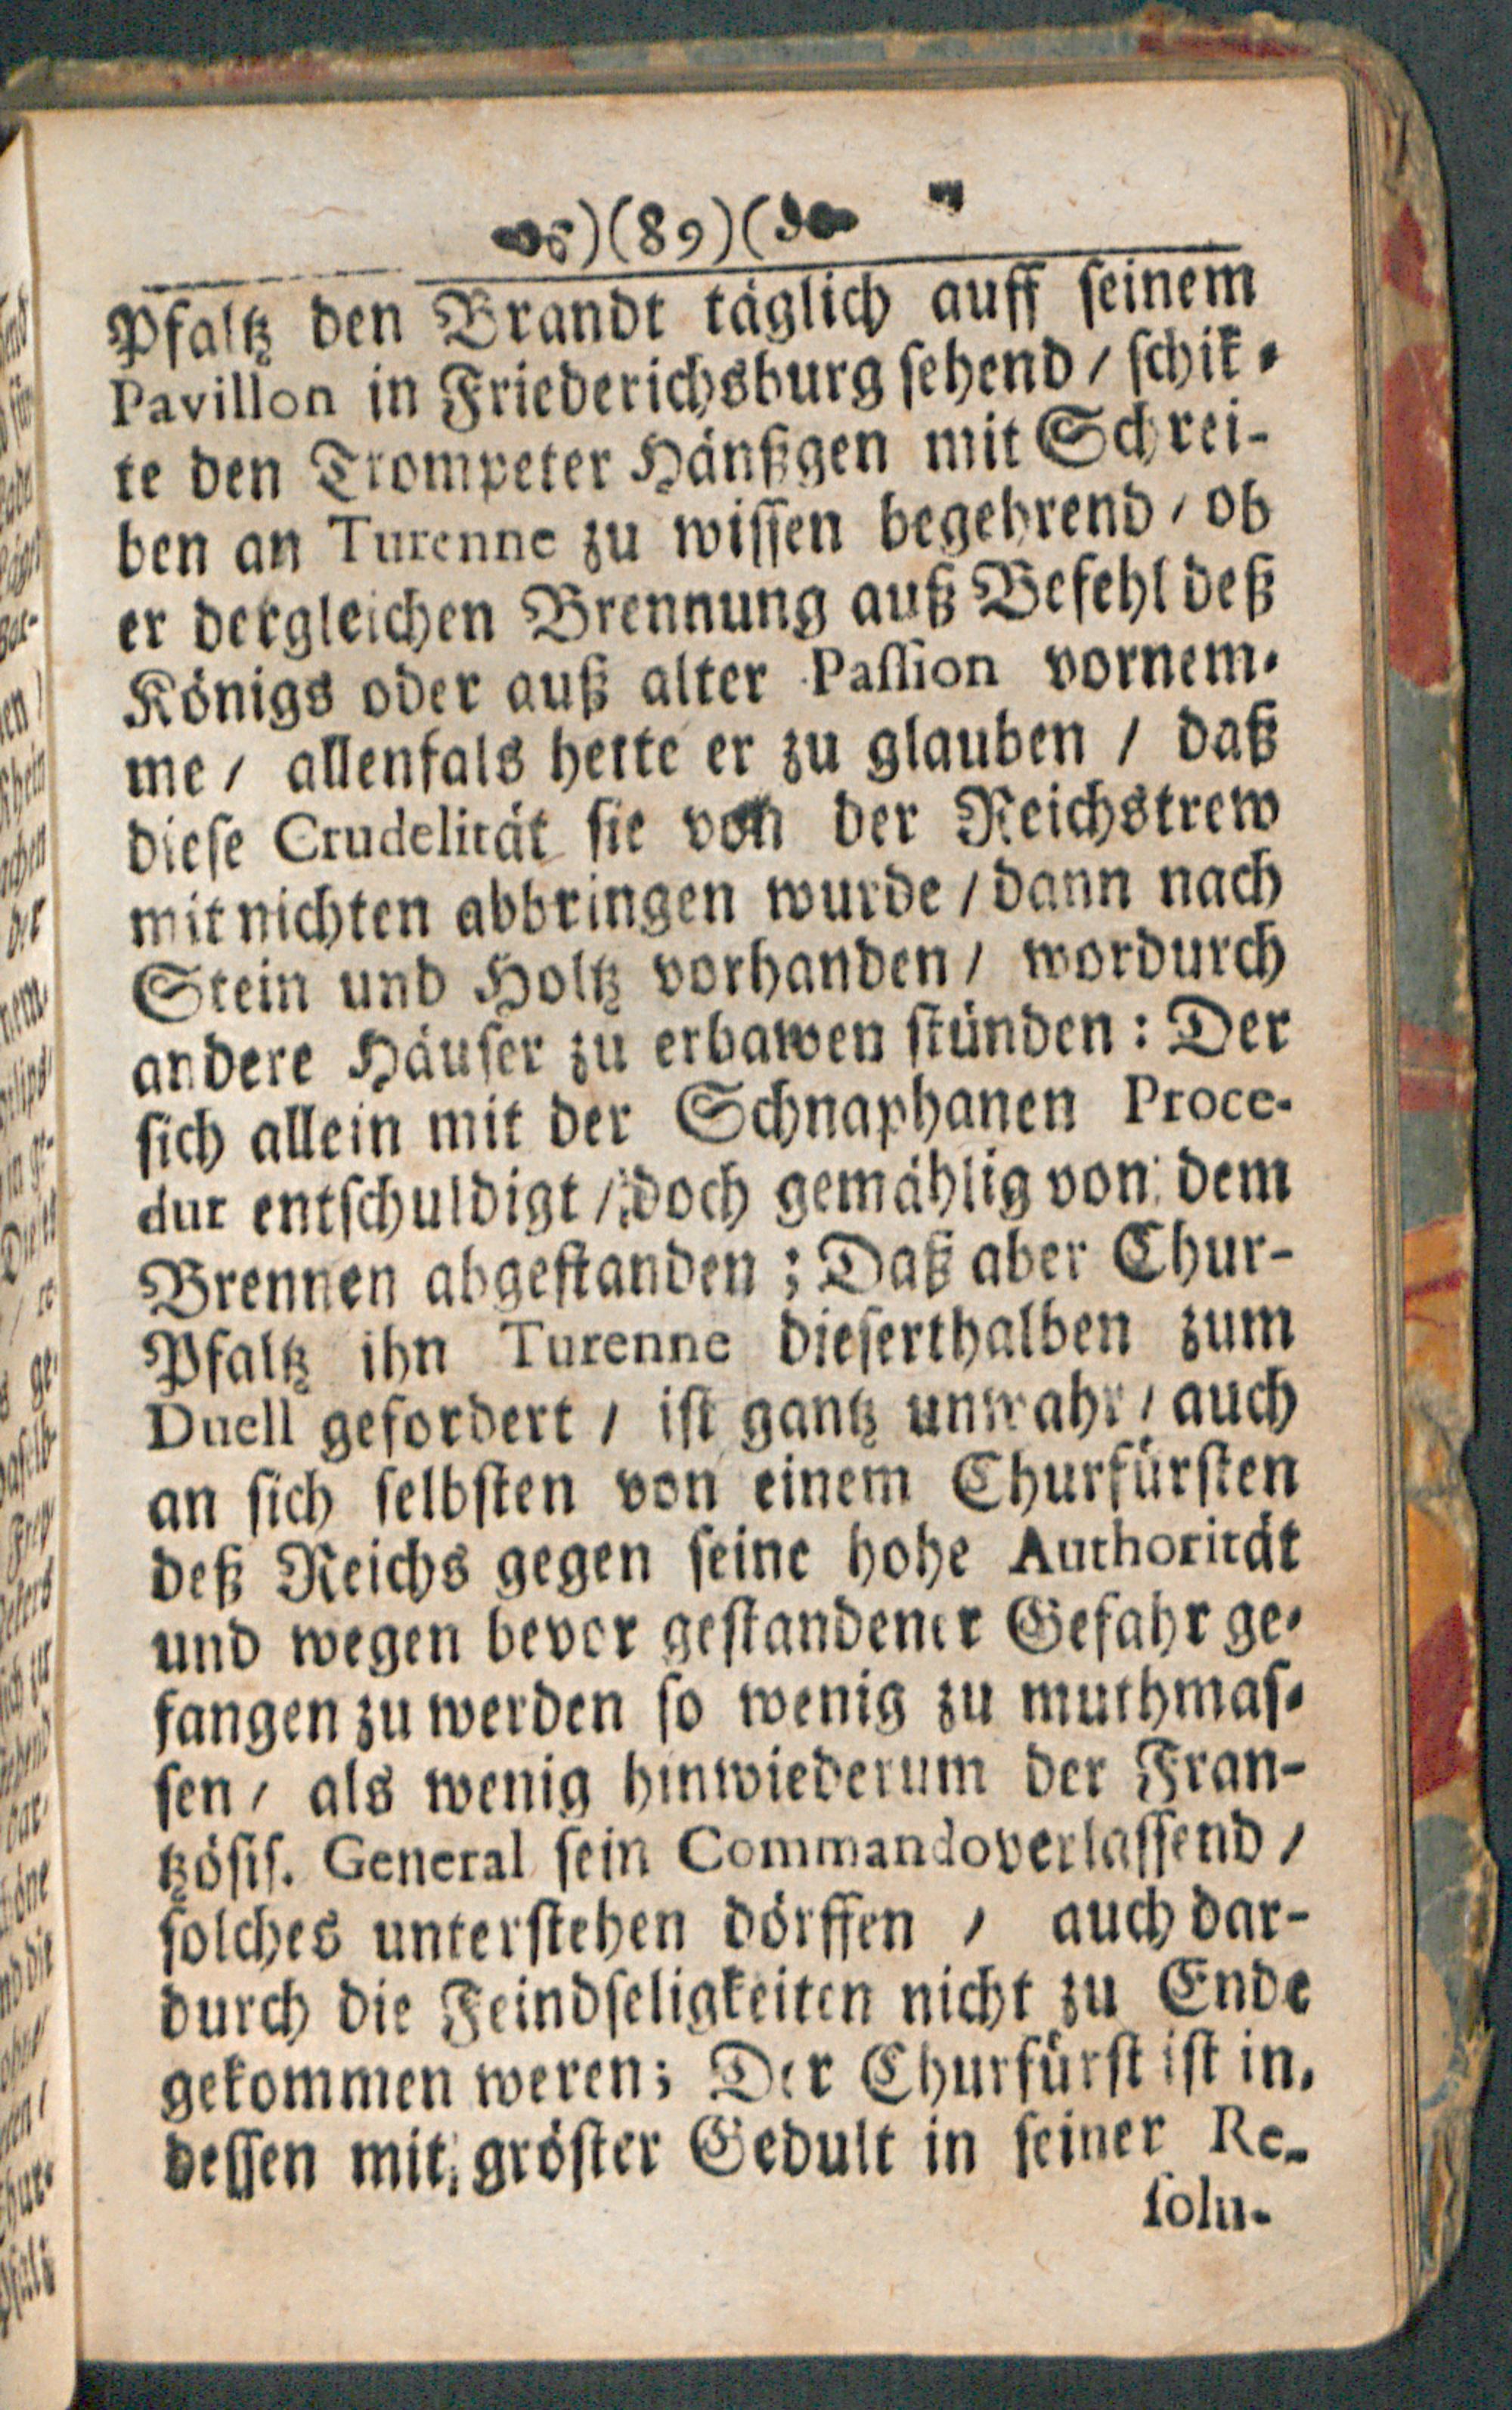 )(89)(
Pfaltz den Brandt täglich auff seinem
Pavillon in Friederichsburg sehend / schik-
te den Trompeter Hänßgen mit Schrei-
ben an Turenne zu wissen begehrend / ob
er dergleichen Brennung auß Befehl deß
Königs oder auß alter Passion vornem-
me / allenfals hette er zu glauben / daß
diese Crudelität sie von der Reichstrew
mit nichten abbringen wurde / dann nach
Stein und Holtz vorhanden / wordurch
andere Häuser zu erbawen stünden: Der
sich allein mit der Schnaphanen Proce-
dur entschuldigt / doch gemählig von dem
Brennen abgestanden; Daß aber Chur-
Pfaltz ihn Turenne dieserthalben zum
Duell gefordert / ist gantz unwahr / auch
an sich selbsten von einem Churfürsten
deß Reichs gegen seine hohe Authorität
und wegen bevor gestandener Gefahr ge-
fangen zu werden so wenig zu muthmas-
sen / als wenig hinwiederum der Fran-
tzösis. General sein Commando verlassend /
solches unterstehen dörffen / auch dar-
durch die Feindseligkeiten nicht zu Ende
gekommen weren; Der Churfürst ist in-
dessen mit gröster Gedult in seiner Re-
solu-